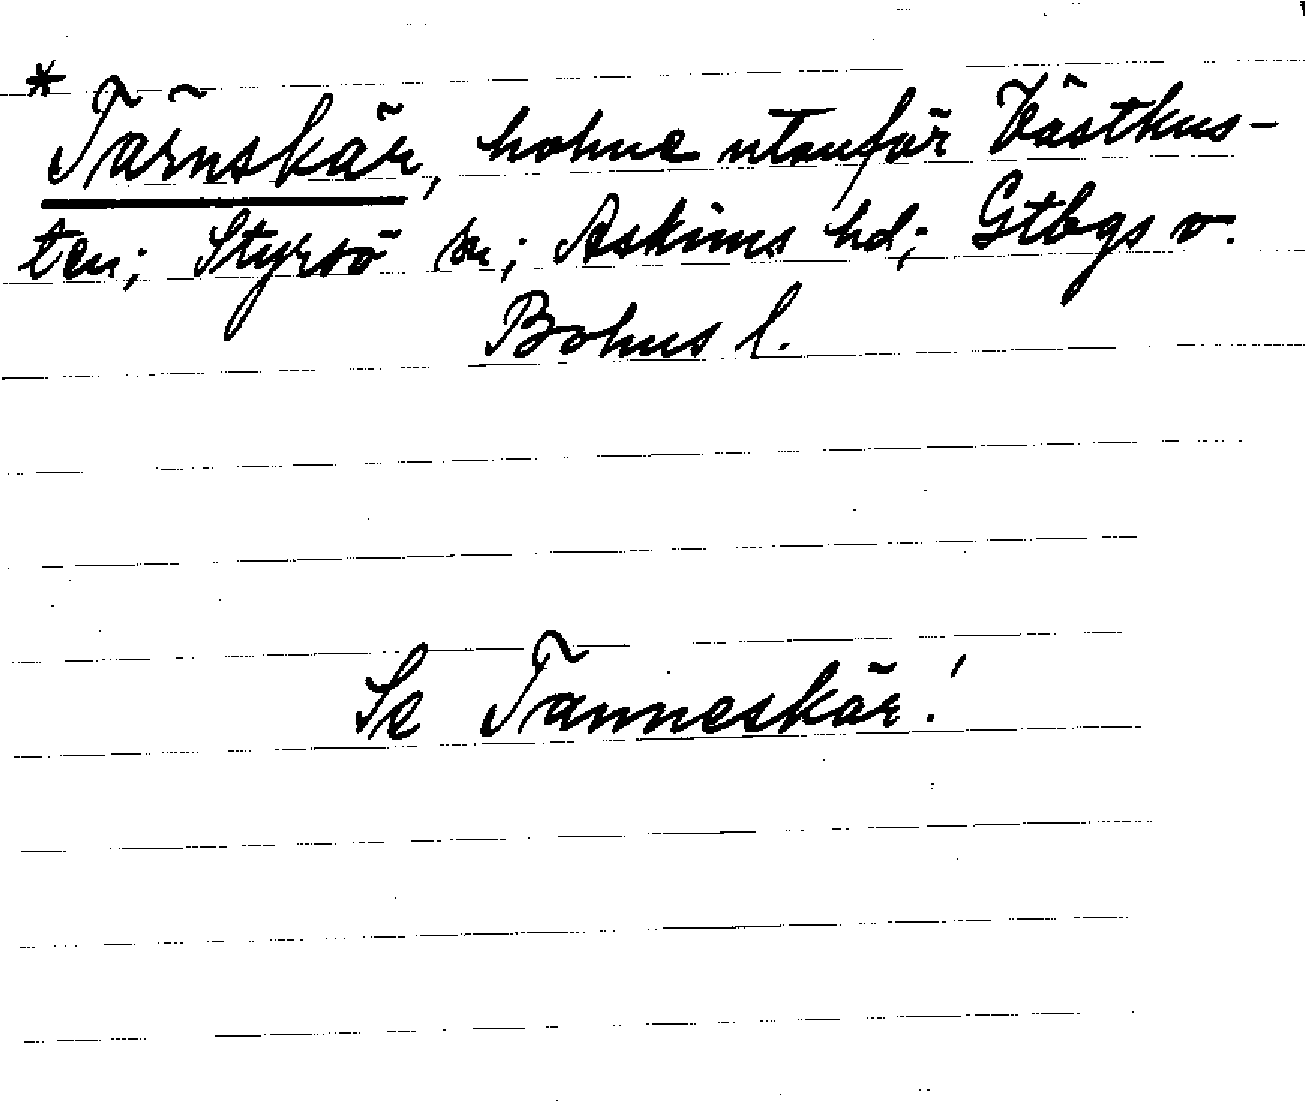 * Tärnskär, holme utanför Västkus-
ten; Styrsö sn; Askims hd; Gtbgs o.
Bohus l.
Se Tanneskär!